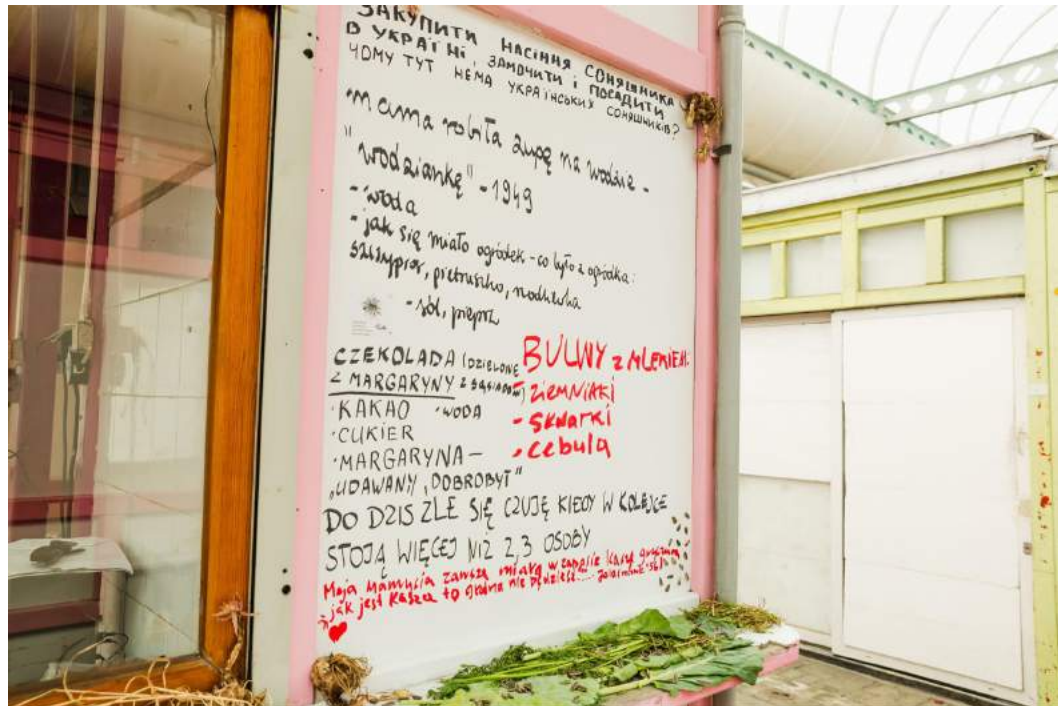 ЗАКУПИТИ НАСІННЯ СОНЯШНИКА
В УКРАЇНІ, ЗАМОЧИТИ І ПОСАДИТИ
ЧОМУ ТУТ НЕМА УКРАЇНСЬКИХ СОНЯШНИКІВ?
mama robiła zupę na wodzie -
"wodziankę" - 1949
- woda
- jak się miało ogródek - co było z ogródka:
szczypior, pietruszka, marchewka
- sól, pieprz
CZEKOLADA (DZIELONE
Z MARGARYNY Z SĄSIADAMI)
· KAKAO · WODA
· CUKIER
· MARGARYNA -
"UDAWANY, DOBROBYT"
BULWY z MLEKIEM:
- ziemniaki
- skwarki
- cebula
DO DZIS ZLE SIĘ CZUJĘ KIEDY W KOLEJCE
STOJĄ WIĘCEJ NIŻ 2,3 OSOBY
Moja Mamusia zawsze miała w zapasie kaszę gryczaną
- jak jest kasza to głodna nie będziesz.....